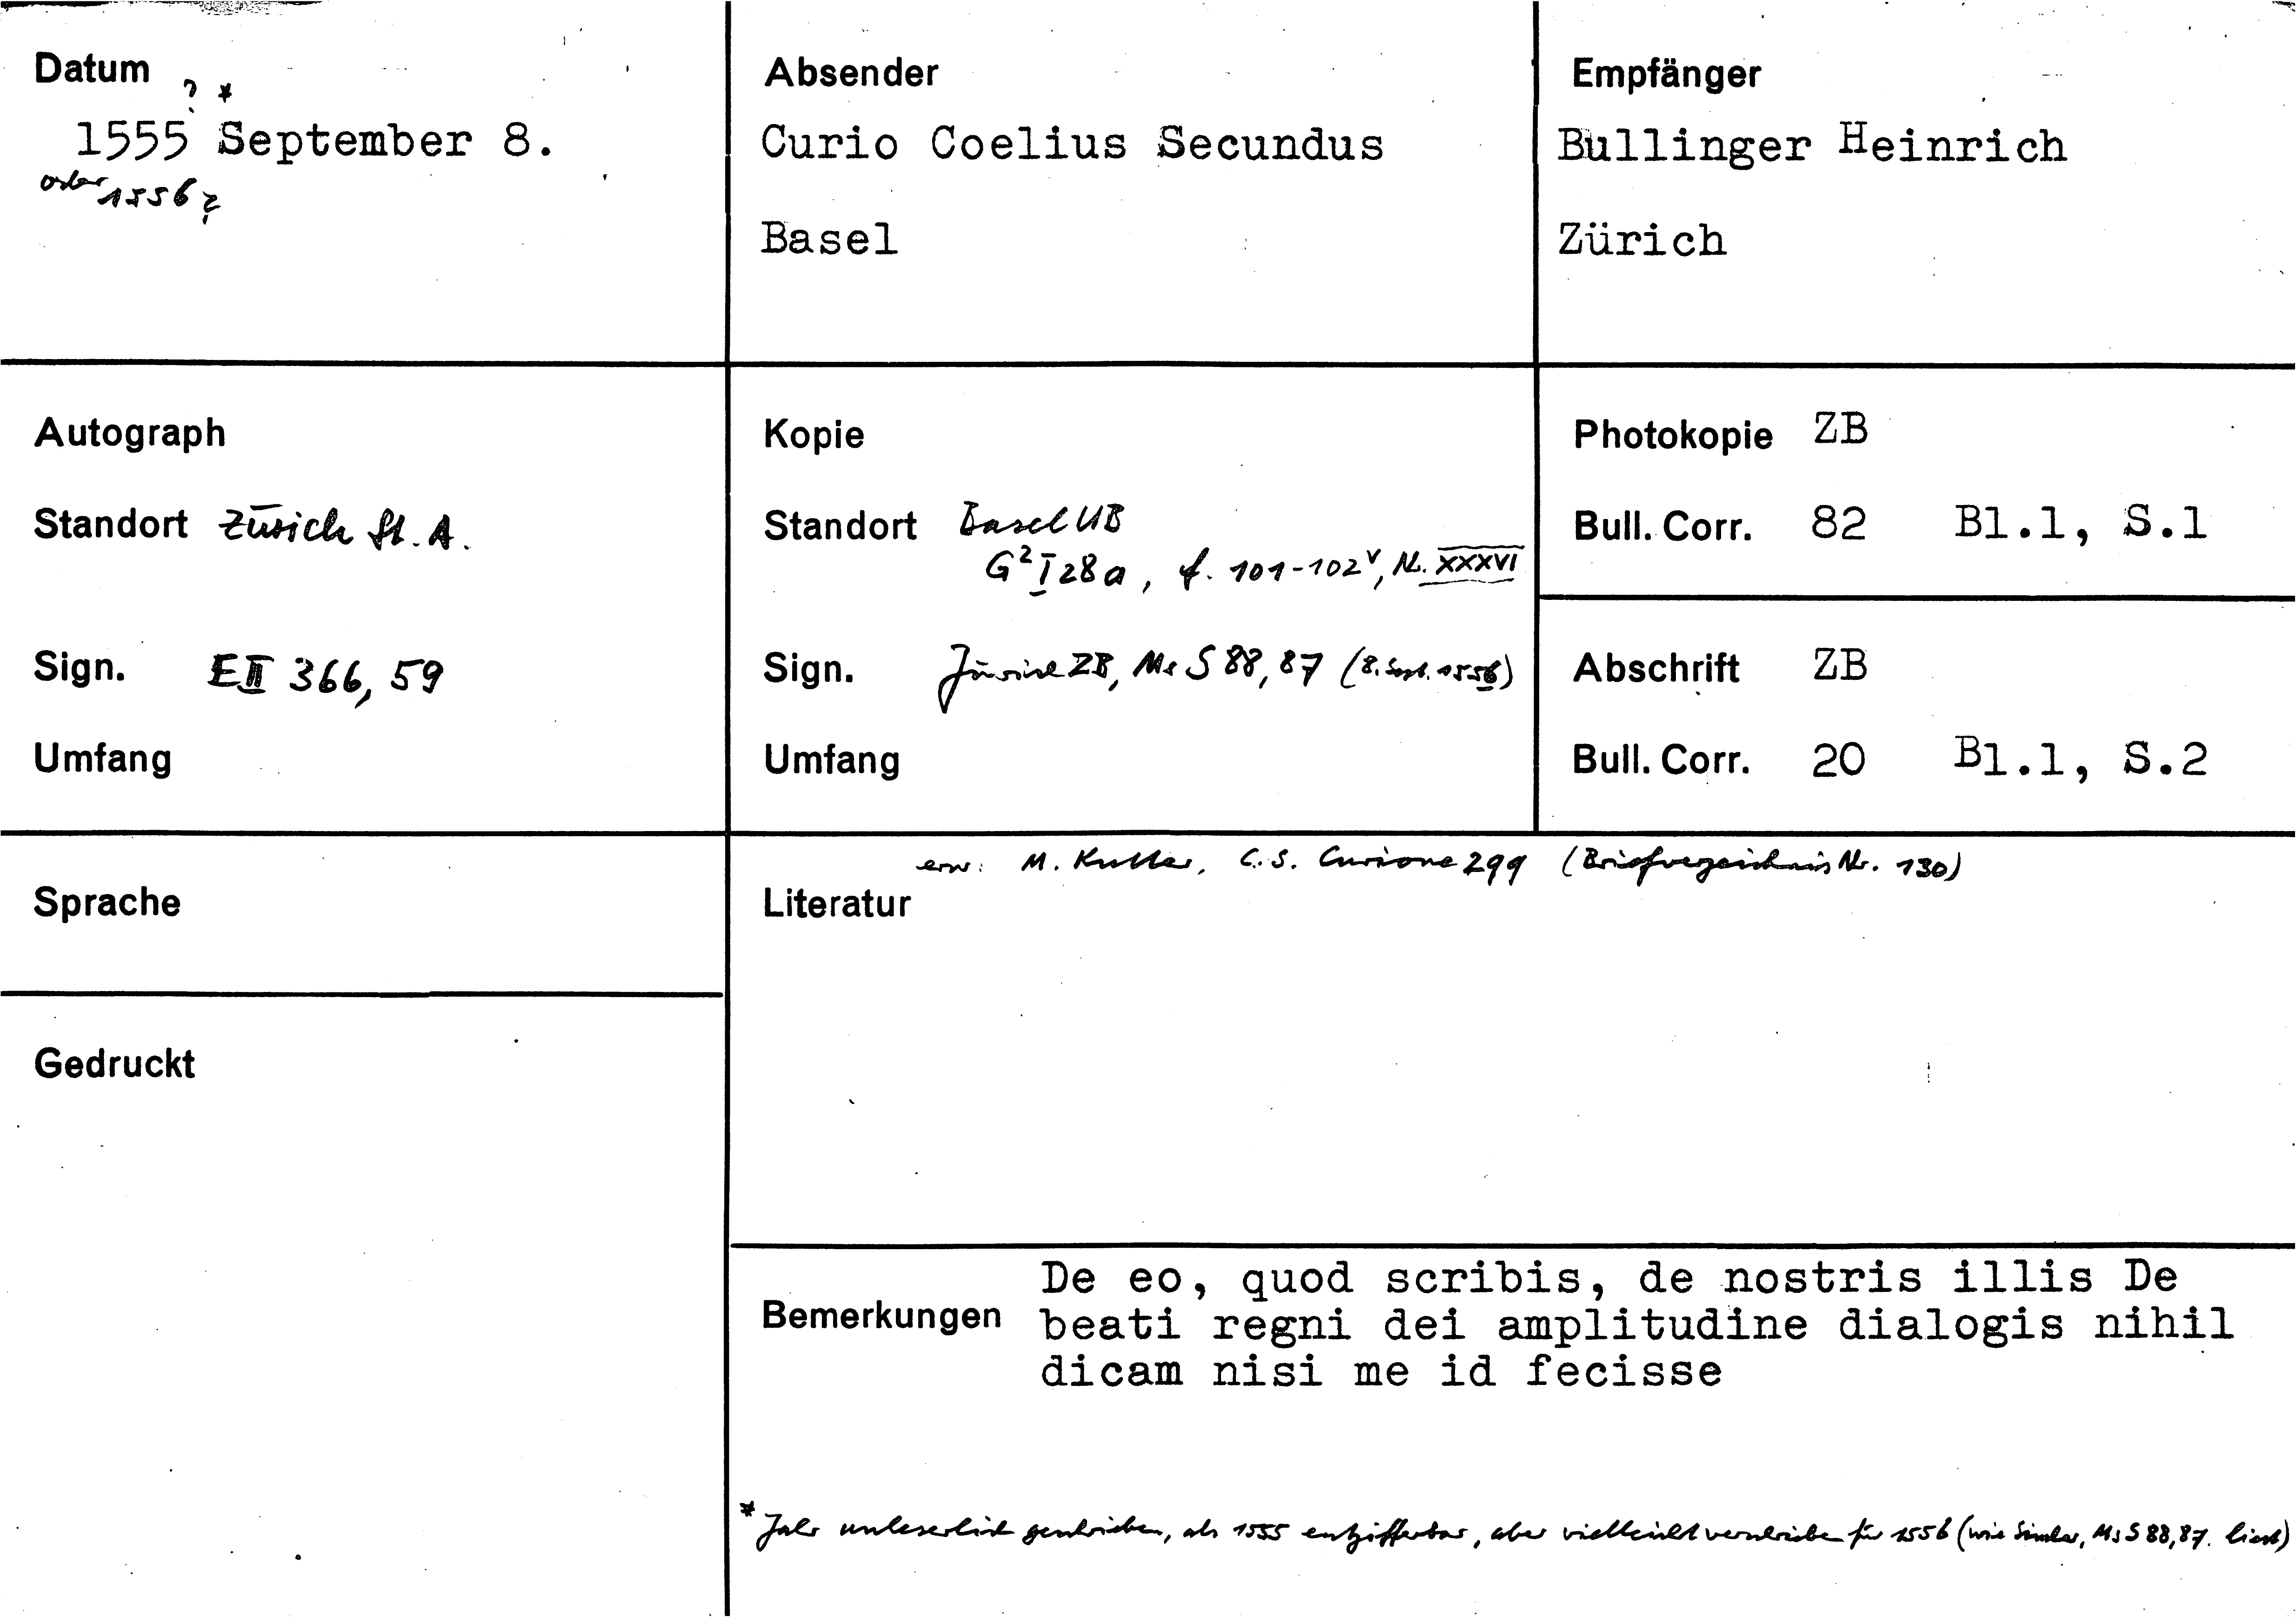 Datum ? *
1555 September 8.
oder 1556?
Absender
Curio Coelius Secundus
Basel
Empfänger
Bullinger Heinrich
Zürich
Autograph
Standort Zürich St. A.
Sign. E II 366, 59
Umfang
Kopie
Standort Basel UB
G² I 28a, f. 101-102ᵛ, Nr. XXXVI
Sign. Zürich ZB, Ms S 88, 87 (8. Sept. 1556)
Umfang
Photokopie ZB
Bull. Corr. 82 Bl.1, S.1
Abschrift ZB
Bull. Corr. 20 Bl.1, S.2
Sprache
Gedruckt
erw: M. Kutter, C.S. Curione 299 (Briefverzeichnis Nr. 130)
Literatur
Bemerkungen
De eo, quod scribis, de nostris illis De
beati regni dei amplitudine dialogis nihil
dicam nisi me id fecisse
* Jahr unleserlich geschrieben, als 1555 entzifferbar, aber vielleicht verschrieben für 1556 (wie Simler, Ms S 88, 87. liest)